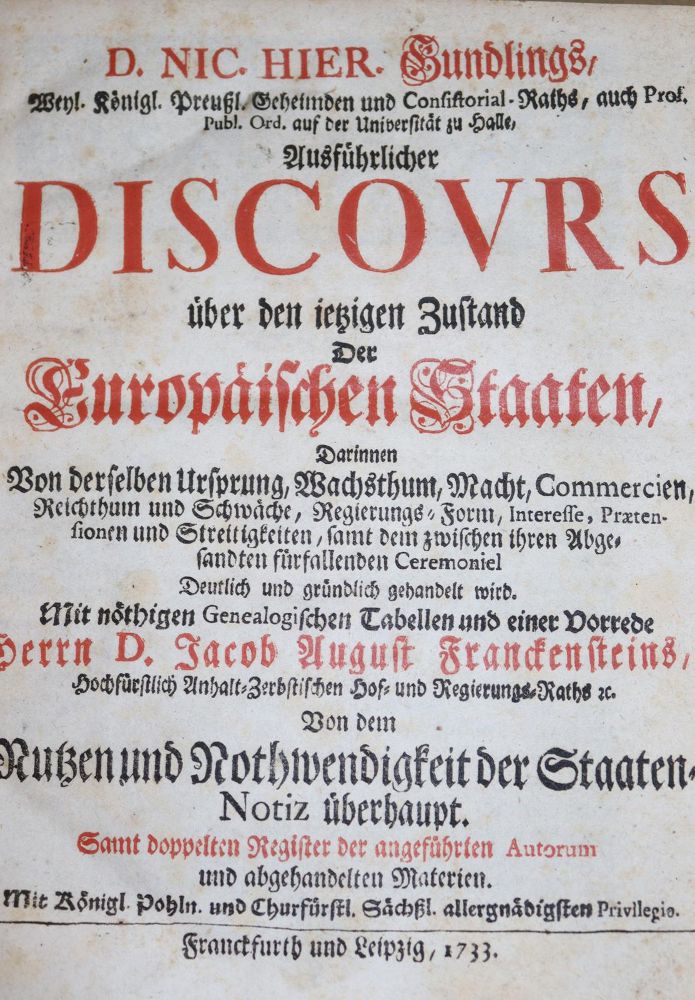 D. NIC. HIER. Gundlings,
Weyl. Königl. Preußl. Geheimden und Consistorial-Raths, auch Prof.
Publ. Ord. auf der Universität zu Halle,
Ausführlicher
DISCOVRS
über den ietzigen Zustand
Der
Europäischen Staaten,
Darinnen
Von derselben Ursprung, Wachsthum, Macht, Commercien,
Reichthum und Schwäche, Regierungs-Form, Interesse, Præten-
sionen und Streitigkeiten, samt dem zwischen ihren Abge-
sandten fürfallenden Ceremoniel
Deutlich und gründlich gehandelt wird.
Mit nöthigen Genealogischen Tabellen und einer Vorrede
Herrn D. Jacob August Franckensteins,
Hochfürstlich Anhalt-Zerbstischen Hof- und Regierungs-Raths ꝛc.
Von dem
Nutzen und Nothwendigkeit der Staaten-
Notiz überhaupt.
Samt doppelten Register der angeführten Autorum
und abgehandelten Materien.
Mit Königl. Pohln. und Churfürstl. Sächßl. allergnädigsten Privilegio.
Franckfurth und Leipzig, 1733.